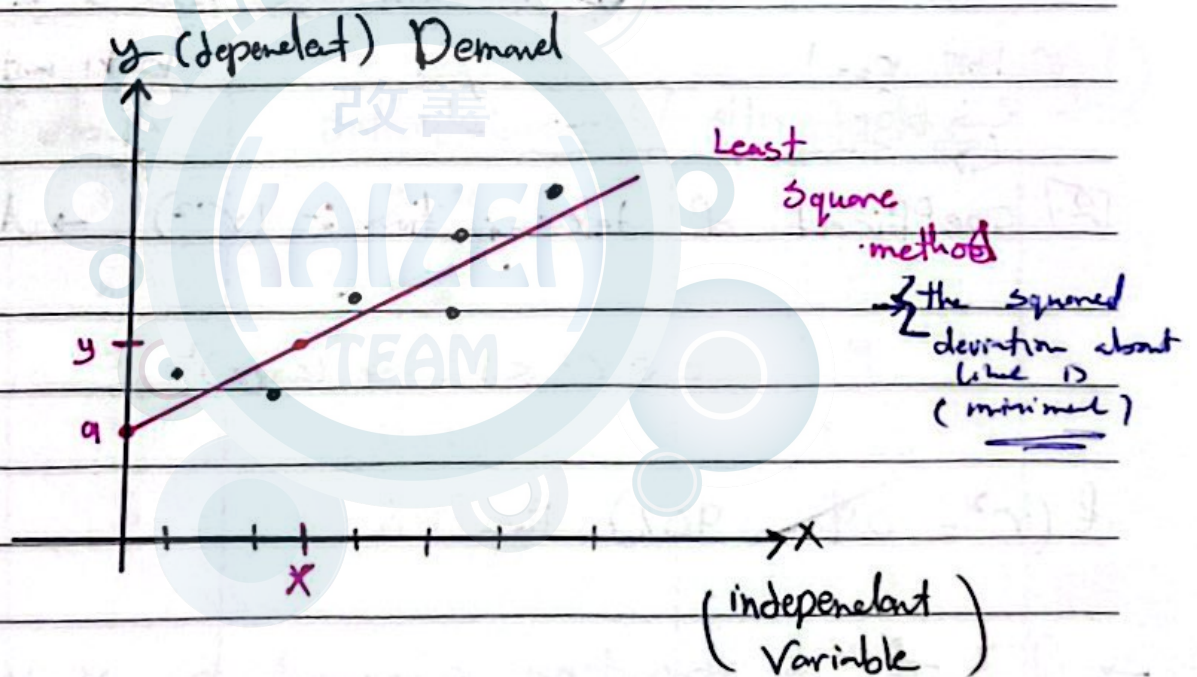 y (dependent) Demand
改善
KAIZEN
TEAM
Least
Square
method
the squared
deviation about
line is
(minimal)
y
a
X
X
(independent
Variable)